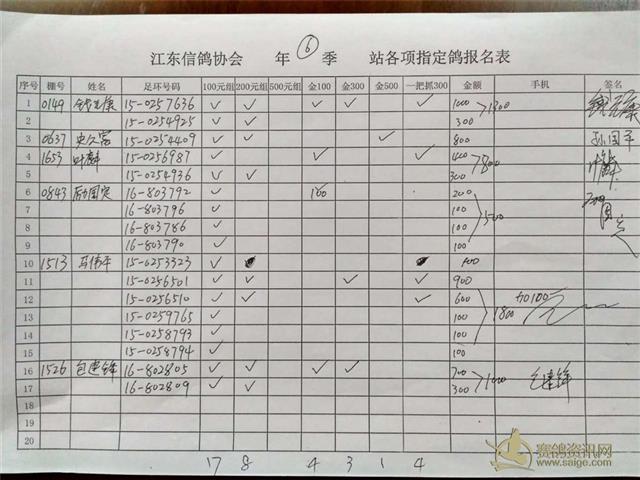 江东信鸽协会 年 ⑥ 季 站各项指定鸽报名表
序号 棚号 姓名 足环号码 100元组 200元组 500元组 金100 金300 金500 一把抓300 金额 手机 签名
1 0149 15-0257636 ✓ ✓ ✓ ✓ ✓ 1000 >1300
2 15-0254925 ✓ ✓ 300
3 0637 史久富 15-0254409 ✓ ✓ ✓ 800 孙国平
4 1653 叶麟 15-0256987 ✓ ✓ ✓ 400 >800 叶麟
5 15-0254936 ✓ ✓ 300
6 0843 16-803792 ✓ 100 200
7 16-803796 ✓ 100 >500
8 16-803786 ✓ 100
9 16-803790 ✓ 100
10 1513 马伟平 15-0253323 ✓ 100
11 15-0256501 ✓ ✓ ✓ ✓ 900
12 15-0256510 ✓ ✓ ✓ 600 加100元
13 15-0259765 ✓ 100 1800
14 15-0258793 ✓ 100
15 15-0258794 ✓ 100
16 1526 包建锋 16-802805 ✓ ✓ ✓ ✓ 700 >1000 包建锋
17 16-802809 ✓ ✓ 300
18
19
20
17 8 4 3 1 4
赛鸽资讯网
www.saige.com